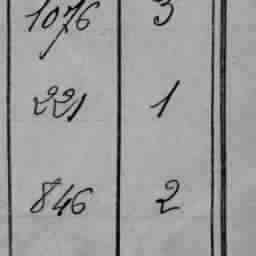 1076 3
221 1
846 2